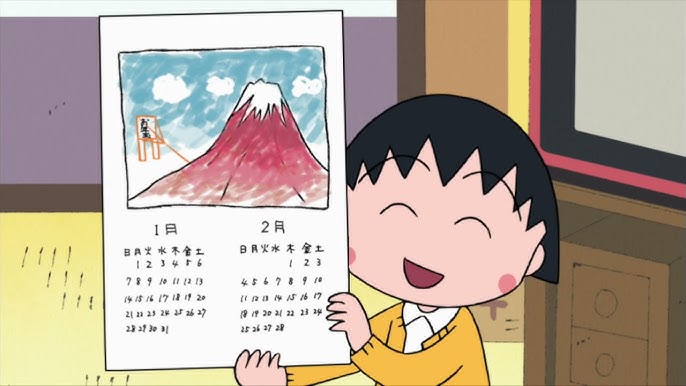 1月
日月火水木金土
1 2 3 4 5 6
7 8 9 10 11 12 13
14 15 16 17 18 19 20
21 22 23 24 25 26 27
28 29 30 31
2月
日月火水木金土
1 2 3
4 5 6 7 8 9 10
11 12 13 14 15 16 17
18 19 20 21 22 23 24
25 26 27 28